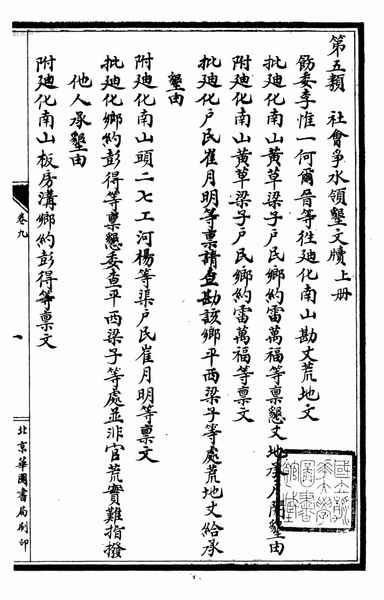 第五類 社會爭水領墾文牘上册
飭委李惟一何爾晉等往廸化南山勘丈荒地文
批廸化南山黄草梁子户民鄉約雷萬福等稟懇丈地承户開墾由
附廸化南山黄草梁子户民鄉約雷萬福等稟文
批廸化户民崔月明等稟請查勘該鄉平西梁子等處荒地丈給承
墾由
附廸化南山頭二七工河楊等渠户民崔月明等稟文
批廸化鄉約彭得等稟懇委查平西梁子等處並非官荒實難指撥
他人承墾由
附廸化南山板房溝鄉約彭得等稟文
卷九
一
北京華國書局刷印